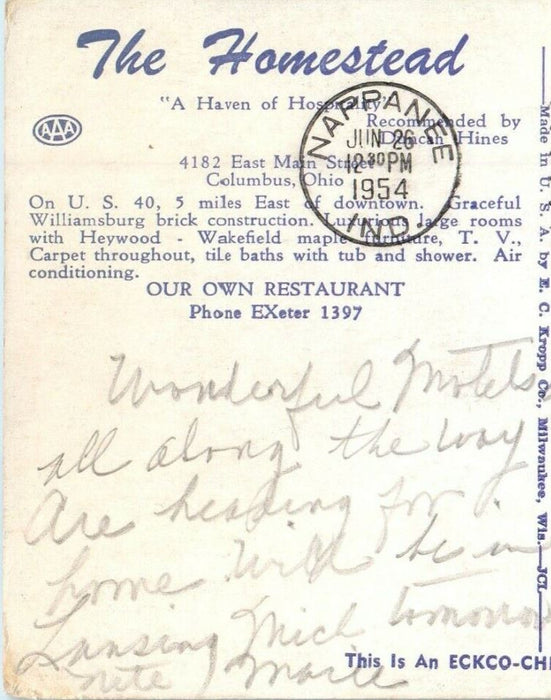 The Homestead
"A Haven of Hospitality"
AAA
Recommended by
Duncan Hines
4182 East Main Street
Columbus, Ohio
On U. S. 40, 5 miles East of downtown. Graceful
Williamsburg brick construction. Luxurious large rooms
with Heywood - Wakefield maple furniture, T. V.,
Carpet throughout, tile baths with tub and shower. Air
conditioning.
OUR OWN RESTAURANT
Phone EXeter 1397
NAPPANEE
JUN 26
12 30 PM
1954
IND.
Wonderful Motels
all along the way
Are heading for
home will be in
Lansing Mich tomorrow
nite Marie
Made in U. S. A. by E. C. Kropp Co., Milwaukee, Wis. JCL
This Is An ECKCO-CH